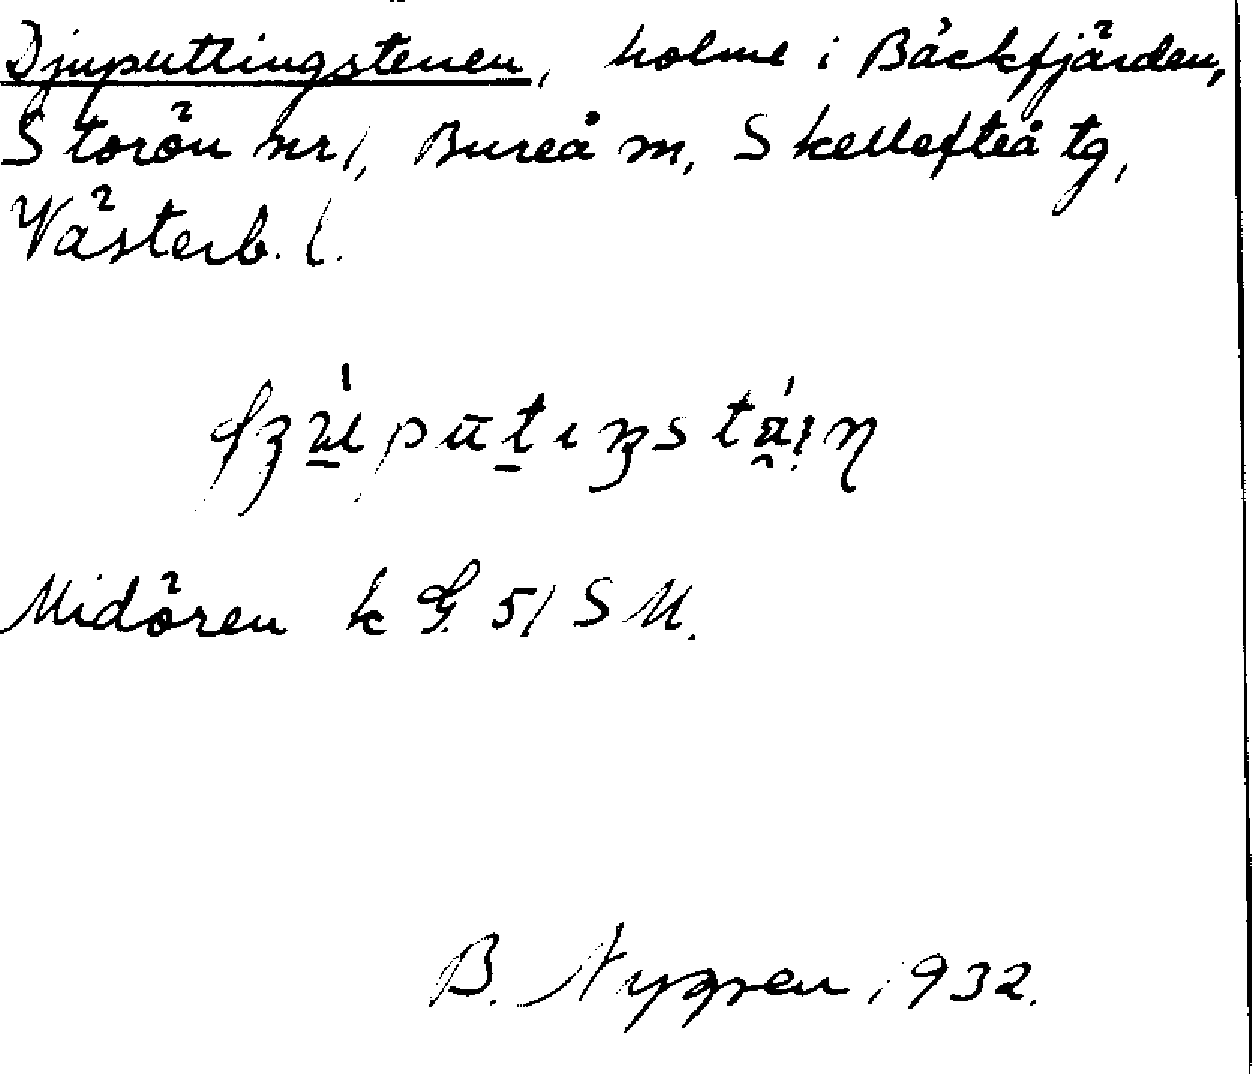 Djuputtingstenen, holme i Bäckfjärden,
Storön nr 1, Bureå sn, Skellefteå tg,
Västerb. l.
Midören k G. 51 SM.
B. Nygren 1932.